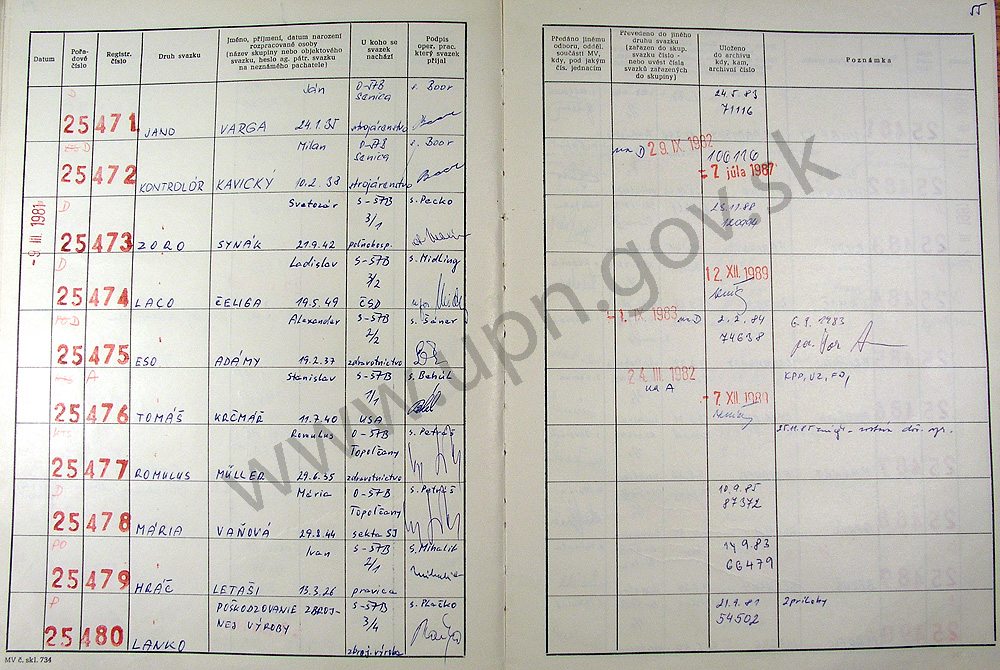 55
Datum
Pořa-
dové
číslo
Registr.
číslo
Druh svazku
Jméno, příjmení, datum narození
rozpracované osoby
(název skupiny nebo objektového
svazku, heslo ag. pátr. svazku
na neznámého pachatele)
U koho se
svazek
nachází
Podpis
oper. prac.
který svazek
přijal
Předáno jinému
odboru, odděl.
součásti MV,
kdy, pod jakým
čís. jednacím
Převedeno do jiného
druhu svazku
(zařazen do skup.
svazku číslo -
nebo uvést čísla
svazků zařazených
do skupiny)
Uloženo
do archivu
kdy, kam,
archivní číslo
Poznámka
- 9 III. 1981
D
25471 JANO VARGA Ján 24.1.35
O-ŠTB
Senica
strojárenstvo
s. Boor
24.5.83
71116
25472 KONTROLÓR KAVICKÝ Milan 10.2.38
O-ŠTB
Senica
strojárenstvo
s. Boor
na D 29. IX. 1982
106116
- 2 júla 1987
D
25473 ZORO SYNÁK Svetozár 21.9.42
S-ŠTB
3/1
poľnohosp.
s. Pecko
23.11.88
D
25474 LACO ČELIGA Ladislav 19.5.49
S-ŠTB
3/2
ČSD
s. Midling
12. XII. 1989
25475 ESO ADÁMY Alexander 19.2.37
S-ŠTB
2/2
zdravotníctvo
s. Šáner
- 1. IX. 1983 na D
2.2.84
74638
6.9.1983
A
25476 TOMÁŠ KRČMÁŘ Stanislav 11.7.40
S-ŠTB
1/1
USA
s. Behúl
24. III. 1982
na A
- 7. XII. 1989
25477 ROMULUS MÜLLER Romulus 29.6.35
O-ŠTB
Topoľčany
zdravotníctvo
s. Petráš
25.11.85
D
25478 MÁRIA VAŇOVÁ Mária 29.3.44
O-ŠTB
Topoľčany
sekta SJ
s. Petráš
10.9.85
87372
PO
25479 HRÁČ LETAŠI Ivan 13.3.26
S-ŠTB
2/1
pravica
s. Mihalik
14.9.83
66479
P
25480 LANKO POŠKODZOVANIE ZBROJ-
NEJ VÝROBY
S-ŠTB
3/4
zbroj. výroba
s. Plačko
21.9.81
54502
2 prílohy
MV č. skl. 734
www.upn.gov.sk